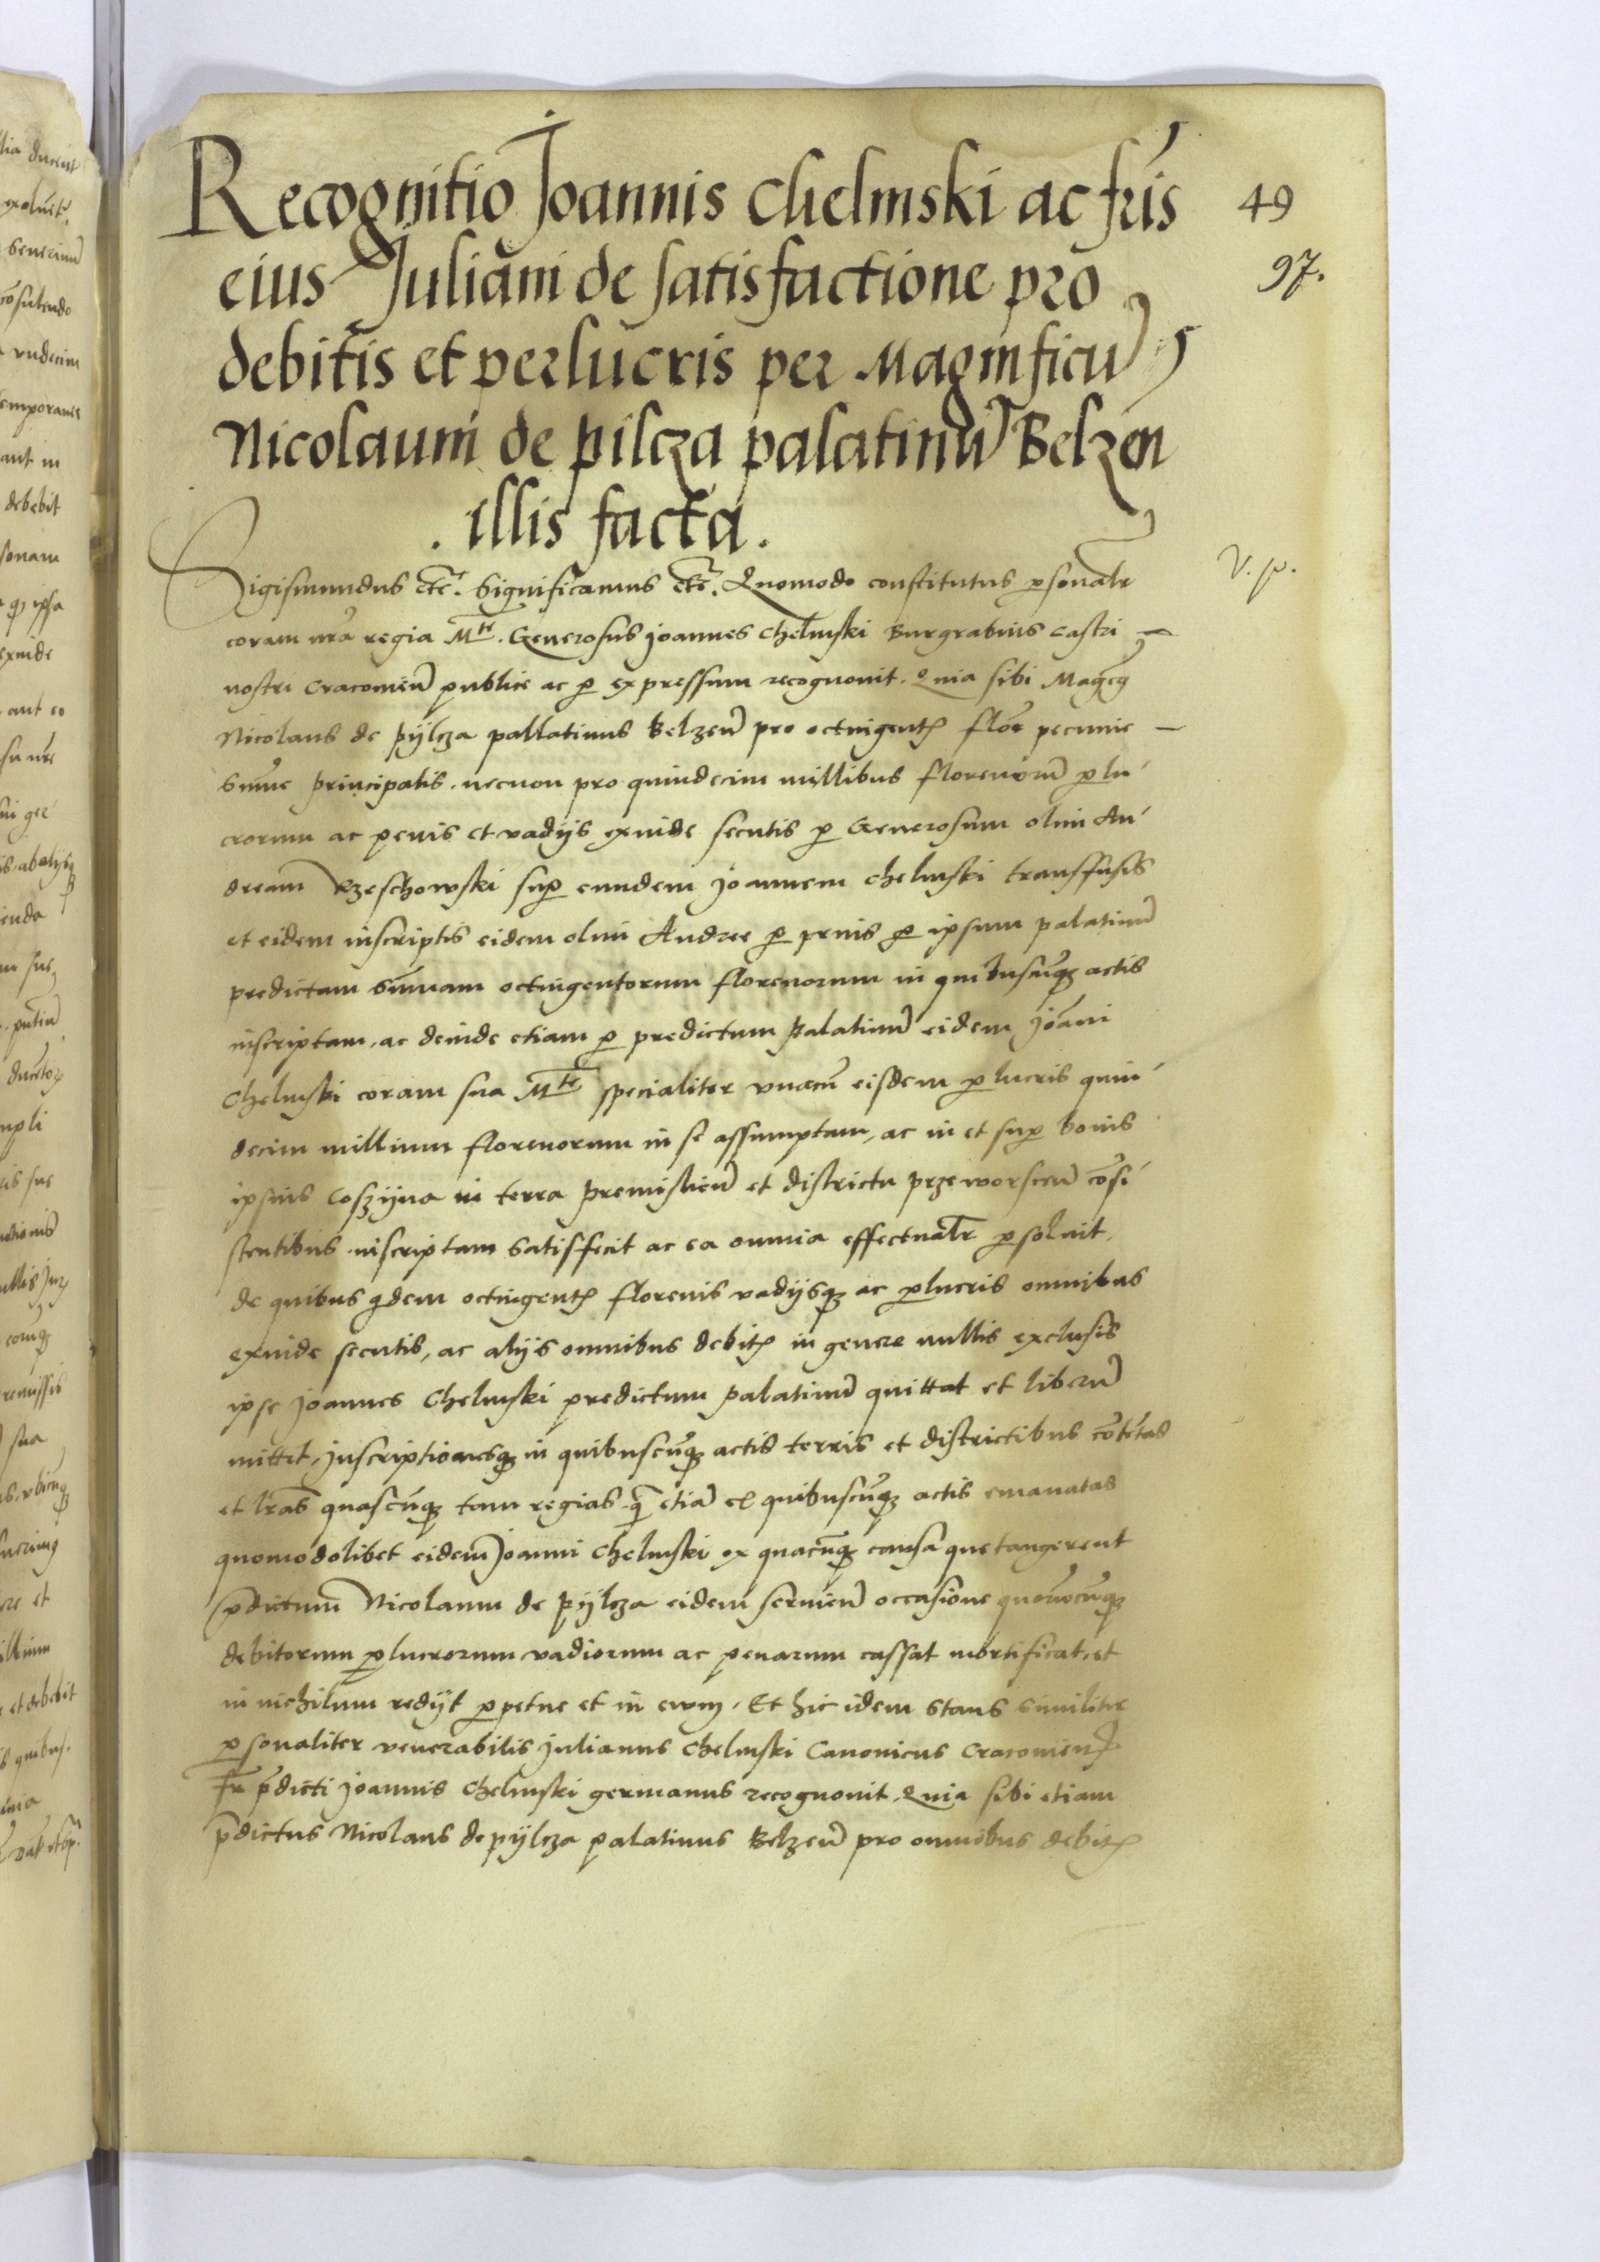 Recognitio Joannis Chelmski ac fris
49
eius Juliani de satisfactione pro
97.
debitis et perlucris per Magnificū
Nicolaum de pilcza palatinū Belzen̄
. illis facta .
Sigismundus etc̄. Significamus etc̄. Quomodo constitutus ꝑsonalr̄
V. p.
coram nr̄a regia Mte. Generosus Joannes Chelmski Burgrabius castri
nostri Cracovien̄ publice ac ꝑ expressum recognovit. Quia sibi Magcꝰ
Nicolaus de pylcza pallatinus Belzen̄ pro octuigentꝭ flor̄ pecunie
summe principalis. necnon pro quindecim millibus florenorū ꝑlu
crorum ac penis et vadijs exinde secutis ꝑ Generosum olim An
dream Rzeschowski suꝑ eundem Joannem Chelmski transfusis
et eidem inscriptis eidem olim Andree ꝑ prius ꝑ ipsum palatinū
predictam summam octuigentorum florenorum in quibuscūqꝫ actis
inscriptam, ac deinde etiam ꝑ predictum palatinū eidem Joāni
Chelmski coram sua Mte specialiter vnacū eisdem ꝑlucris quin
decim millium florenorum in se assumptam, ac in et suꝑ bonis
ipsius Coszyna in terra premislien̄ et districtu przeworscen̄ cōsi
stentibus inscriptam satisfecit ac ea omnia effectualr̄ ꝑsoluit,
de quibus qdem octuigentꝭ florenis vadijsqꝫ ac ꝑlucris omnibus
exinde secutis, ac alijs omnibus debitꝭ in genere nullis exclusis
ipse Joannes Chelmski predictum palatinū quittat et liberū
mittit, Inscriptionesqꝫ in quibuscūqꝫ actis terris et districtibus cōtētas
et lr̄as quascūqꝫ tam regias q̄ etiā ex quibuscūqꝫ actis emanatas
quomodolibet eidem Joanni Chelmski ex quacūqꝫ causa que tangerent
p̄dictum Nicolaum de pylcza eidem servien̄ occasione quorūcūqꝫ
debitorum ꝑlucrorum vadiorum ac penarum cassat mortificat, et
in nichilum redijt ꝑpetue et in evm. Et hic idem stans similiter
ꝑsonaliter venerabilis Julianus Chelmski Canonicus Cracovien̄
fr̄ p̄dicti Joannis Chelmski germanus recognovit. Quia sibi etiam
p̄dictus Nicolaus de pylcza palatinus Belzen̄ pro omnibus debitꝭ